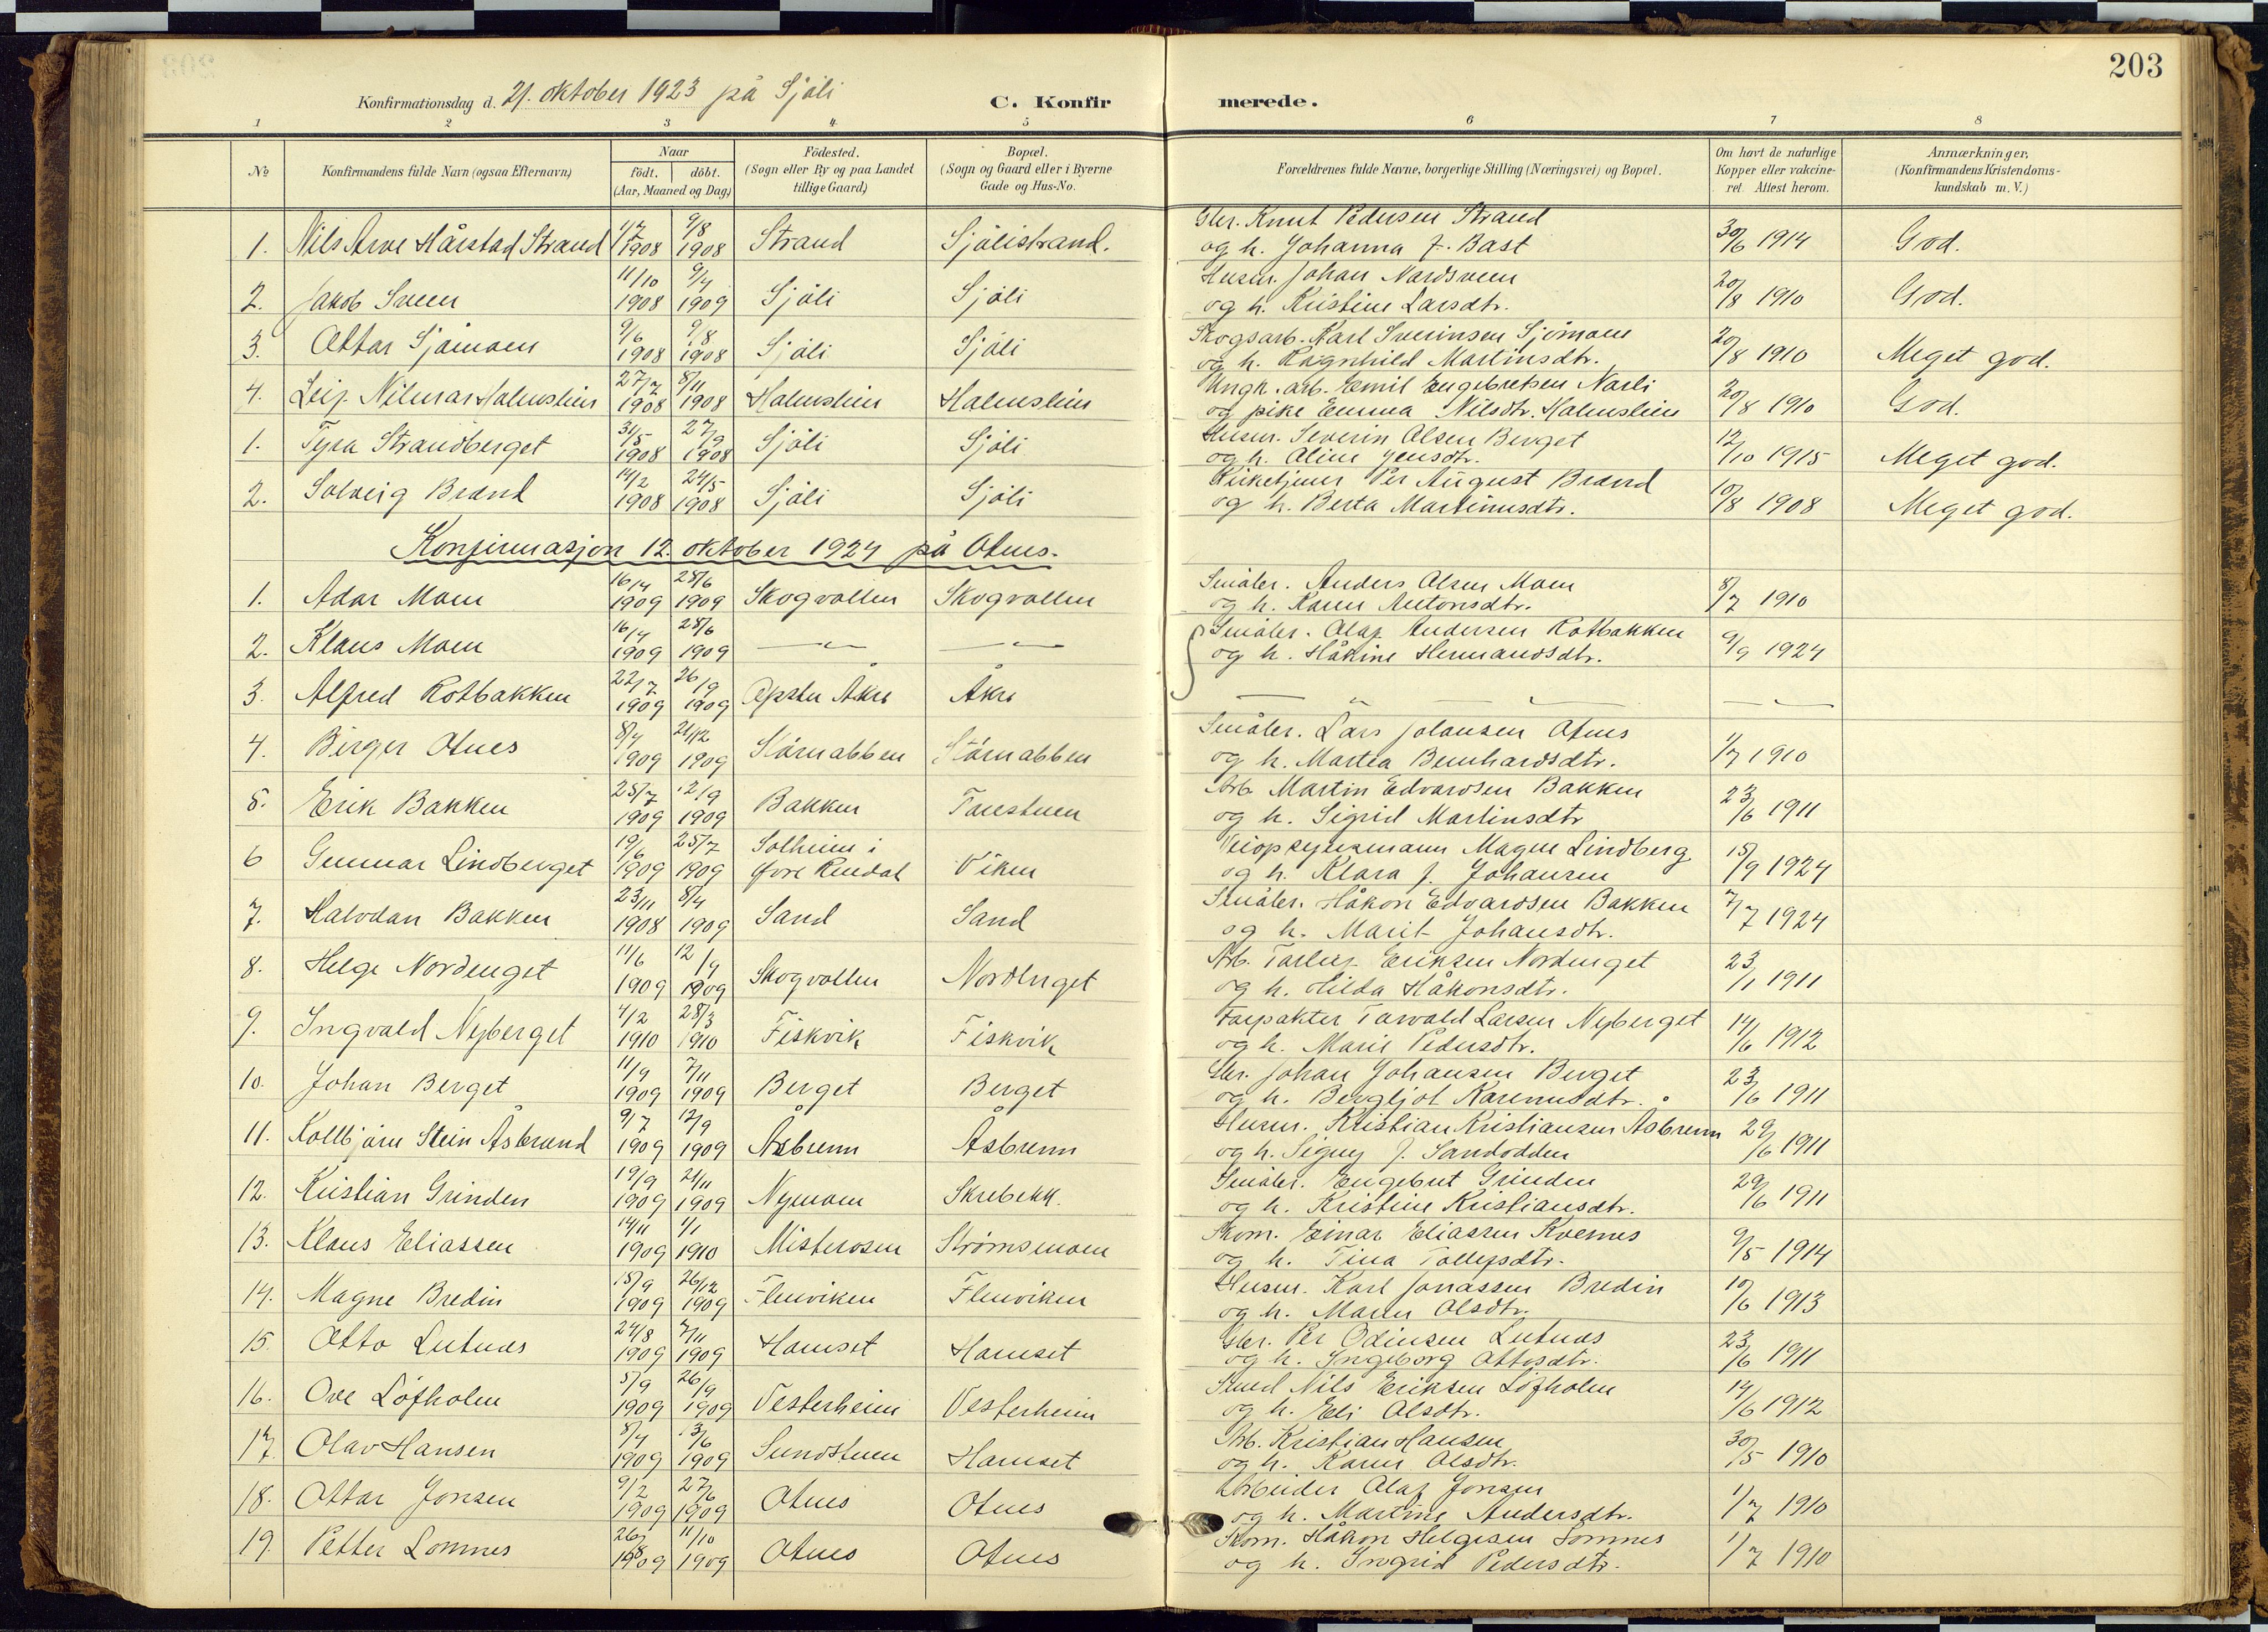 203
Konfirmationsdag d. 21. oktober 1923 på Sjöli
C. Konfirmerede.
1 2 3 4 5 6 7 8
No
Konfirmandens fulde Navn (ogsaa Efternavn)
Naar
födt. döbt.
(Aar, Maaned og Dag)
Födested.
(Sogn eller By og paa Landet
tillige Gaard)
Bopæl.
(Sogn og Gaard eller i Byerne
Gade og Hus-No.
Forældrenes fulde Navne, borgerlige Stilling (Næringsvei) og Bopæl.
Om havt de naturlige
Kopper eller vakcine-
ret. Attest herom.
Anmærkninger,
(Konfirmandens Kristendoms-
kundskab m. V.)
1. Nils Arve Hårstad Strand 1/7 1908 9/8 1908 Strand Sjölistrand. Gbr. Knut Pedersen Strand
og h. Johanna J. Bast 30/6 1914 God.
2. Jakob Sveen 11/10 1908 9/4 1909 Sjöli Sjöli Husm. Johan Nordsveen
og h. Kristine Larsdtr. 20/8 1910 God.
3. Ottar Sjömoen 9/6 1908 9/8 1908 Sjöli Sjöli Skogsarb. Karl Severinsen Sjömoen
og h. Ragnhild Martinsdtr. 20/8 1910 Meget god.
4. Leif Nilmar Halmstien 27/7 1908 8/11 1908 Halmstien Halmstien Ungk. arb. Emil Engebretsen Narli
og pike Emma Nilsdtr. Halmstien 20/8 1910 God.
1. Tyra Strandberget 31/5 1908 27/9 1908 Sjöli Sjöli Husm. Severin Olsen Berget
og h. Oline Jensdtr. 12/10 1915 Meget god.
2. Solveig Brænd 14/2 1908 24/5 1908 Sjöli Sjöli Kirketjener Per August Brænd
og h. Berta Martinusdtr. 10/8 1908 Meget god.
Konfirmasjon 12. oktober 1924 på Otnes.
1. Adar Moen 16/4 1909 28/6 1909 Skogvollen Skogvollen Småbr. Anders Olsen Moen
og h. Karen Antonsdtr. 8/7 1910
2. Klaus Moen 16/4 1909 28/6 1909 —"— —"— Småbr. Olaf Andersen Rotbakken
og h. Håkine Hermandsdtr. 9/9 1924
3. Alfred Rotbakken 22/7 1909 26/9 1909 Åkre Åkre —"— —"—
4. Birger Otnes 8/4 1909 1909 Störnabben Störnabben Småbr. Lars Johansen Otnes
og h. Martea Bernhardsdtr. 1/7 1910
5. Erik Bakken 25/7 1909 12/9 1909 Bakken Tanestuen Arb. Martin Edvardsen Bakken
og h. Sigrid Martinsdtr 23/6 1911
6 Gunnar Lindberget 19/6 1909 25/7 1909 Solheim i
Øvre Rendal Viken Veiopsynsmann Magne Lindberg
og h. Klara J. Johansen 15/9 1924
7. Halvdan Bakken 23/11 1908 8/4 1909 Sand Sand Småbr. Håkon Edvardsen Bakken
og h. Marit Johansdtr. 7/7 1924
8. Helge Nordenget 11/6 1909 12/9 1909 Skogvollen Nordenget Arb. Torleif Eriksen Nordenget
og h. Hilda Håkonsdtr. 23/1 1911
9. Ingvald Nyberget 4/2 1910 28/3 1910 Fiskvik Fiskvik Forpakter Torvald Larsen Nyberget
og h. Marie Pedersdtr. 14/6 1912
10. Johan Berget 11/9 1909 7/11 1909 Berget Berget Gbr. Johan Johansen Berget
og h. Bergljot Karenusdtr. 23/6 1911
11. Kolbjörn Stein Åsbrand 9/7 1909 12/9 1909 Åsbrenn Åsbrenn Husm. Kristian Kristiansen Åsbrenn
og h. Signy J. Sandodden 29/6 1911
12. Kristian Grinden 19/9 1909 21/11 1909 Nymoen Skrebekk. Småbr. Engebret Grinden
og h. Kristine Kristiansdtr. 29/6 1911
13. Klaus Eliassen 14/11 1909 1/1 1910 Misterosen Strömsmoen Skom. Einar Eliassen Kvernes
og h. Tina Tollefsdtr. 9/5 1914
14. Magne Bredin 15/9 1909 26/12 1909 Flenviken Flenviken Husm. Karl Jonassen Bredin
og h. Maren Olsdtr. 10/6 1913
15. Otto Lutnæs 24/8 1909 7/11 1909 Hamset Hamset Gbr. Per Odinsen Lutnæs
og h. Ingeborg Ottosdtr. 23/6 1911
16. Ove Löfholen 5/9 1909 26/9 1909 Vesterheim Vesterheim Smed Nils Eriksen Löfholen
og h. Eli Olsdtr. 14/6 1912
17. Olav Hansen 8/4 1909 13/6 1909 Sundstuen Hamset Arb. Kristian Hansen
og h. Karen Olsdtr. 30/5 1910
18. Ottar Jonsen 9/2 1909 27/6 1909 Otnes Otnes Arbeider Olaf Jonsen
og h. Martine Andersdtr. 1/7 1910
19. Petter Lomnes 26/8 1909 11/10 1909 Otnes Otnes Skom. Håkon Helgesen Lomnes
og h. Ingrid Pedersdtr. 1/7 1910